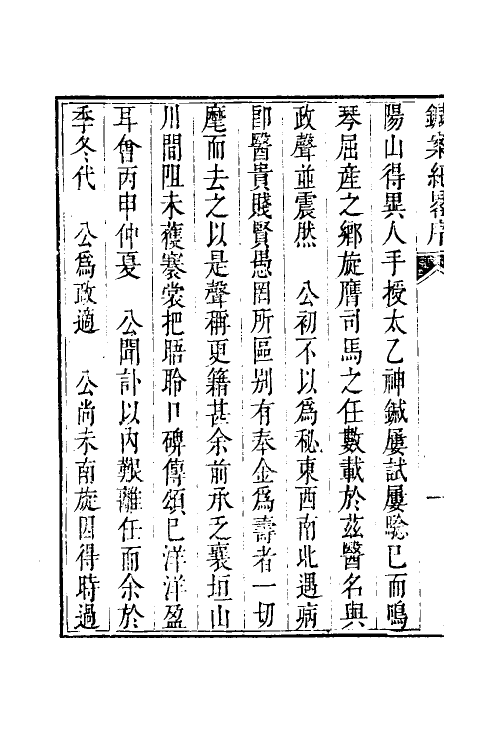 鍼案紀畧序
陽山得異人手授太乙神鍼屢試屢騐已而鳴
琴屈産之鄉旋膺司馬之任數載於茲醫名與
政聲並震然　公初不以爲秘東西南北遇病
卽醫貴賤賢愚罔所區别有奉金爲壽者一切
麾而去之以是聲稱更籍甚余前承乏襄垣山
川間阻未獲褰裳把晤聆口碑傳頌已洋洋盈
耳會丙申仲夏　公聞訃以內艱離任而余於
季冬代　公爲政適　公尚未南旋因得時過